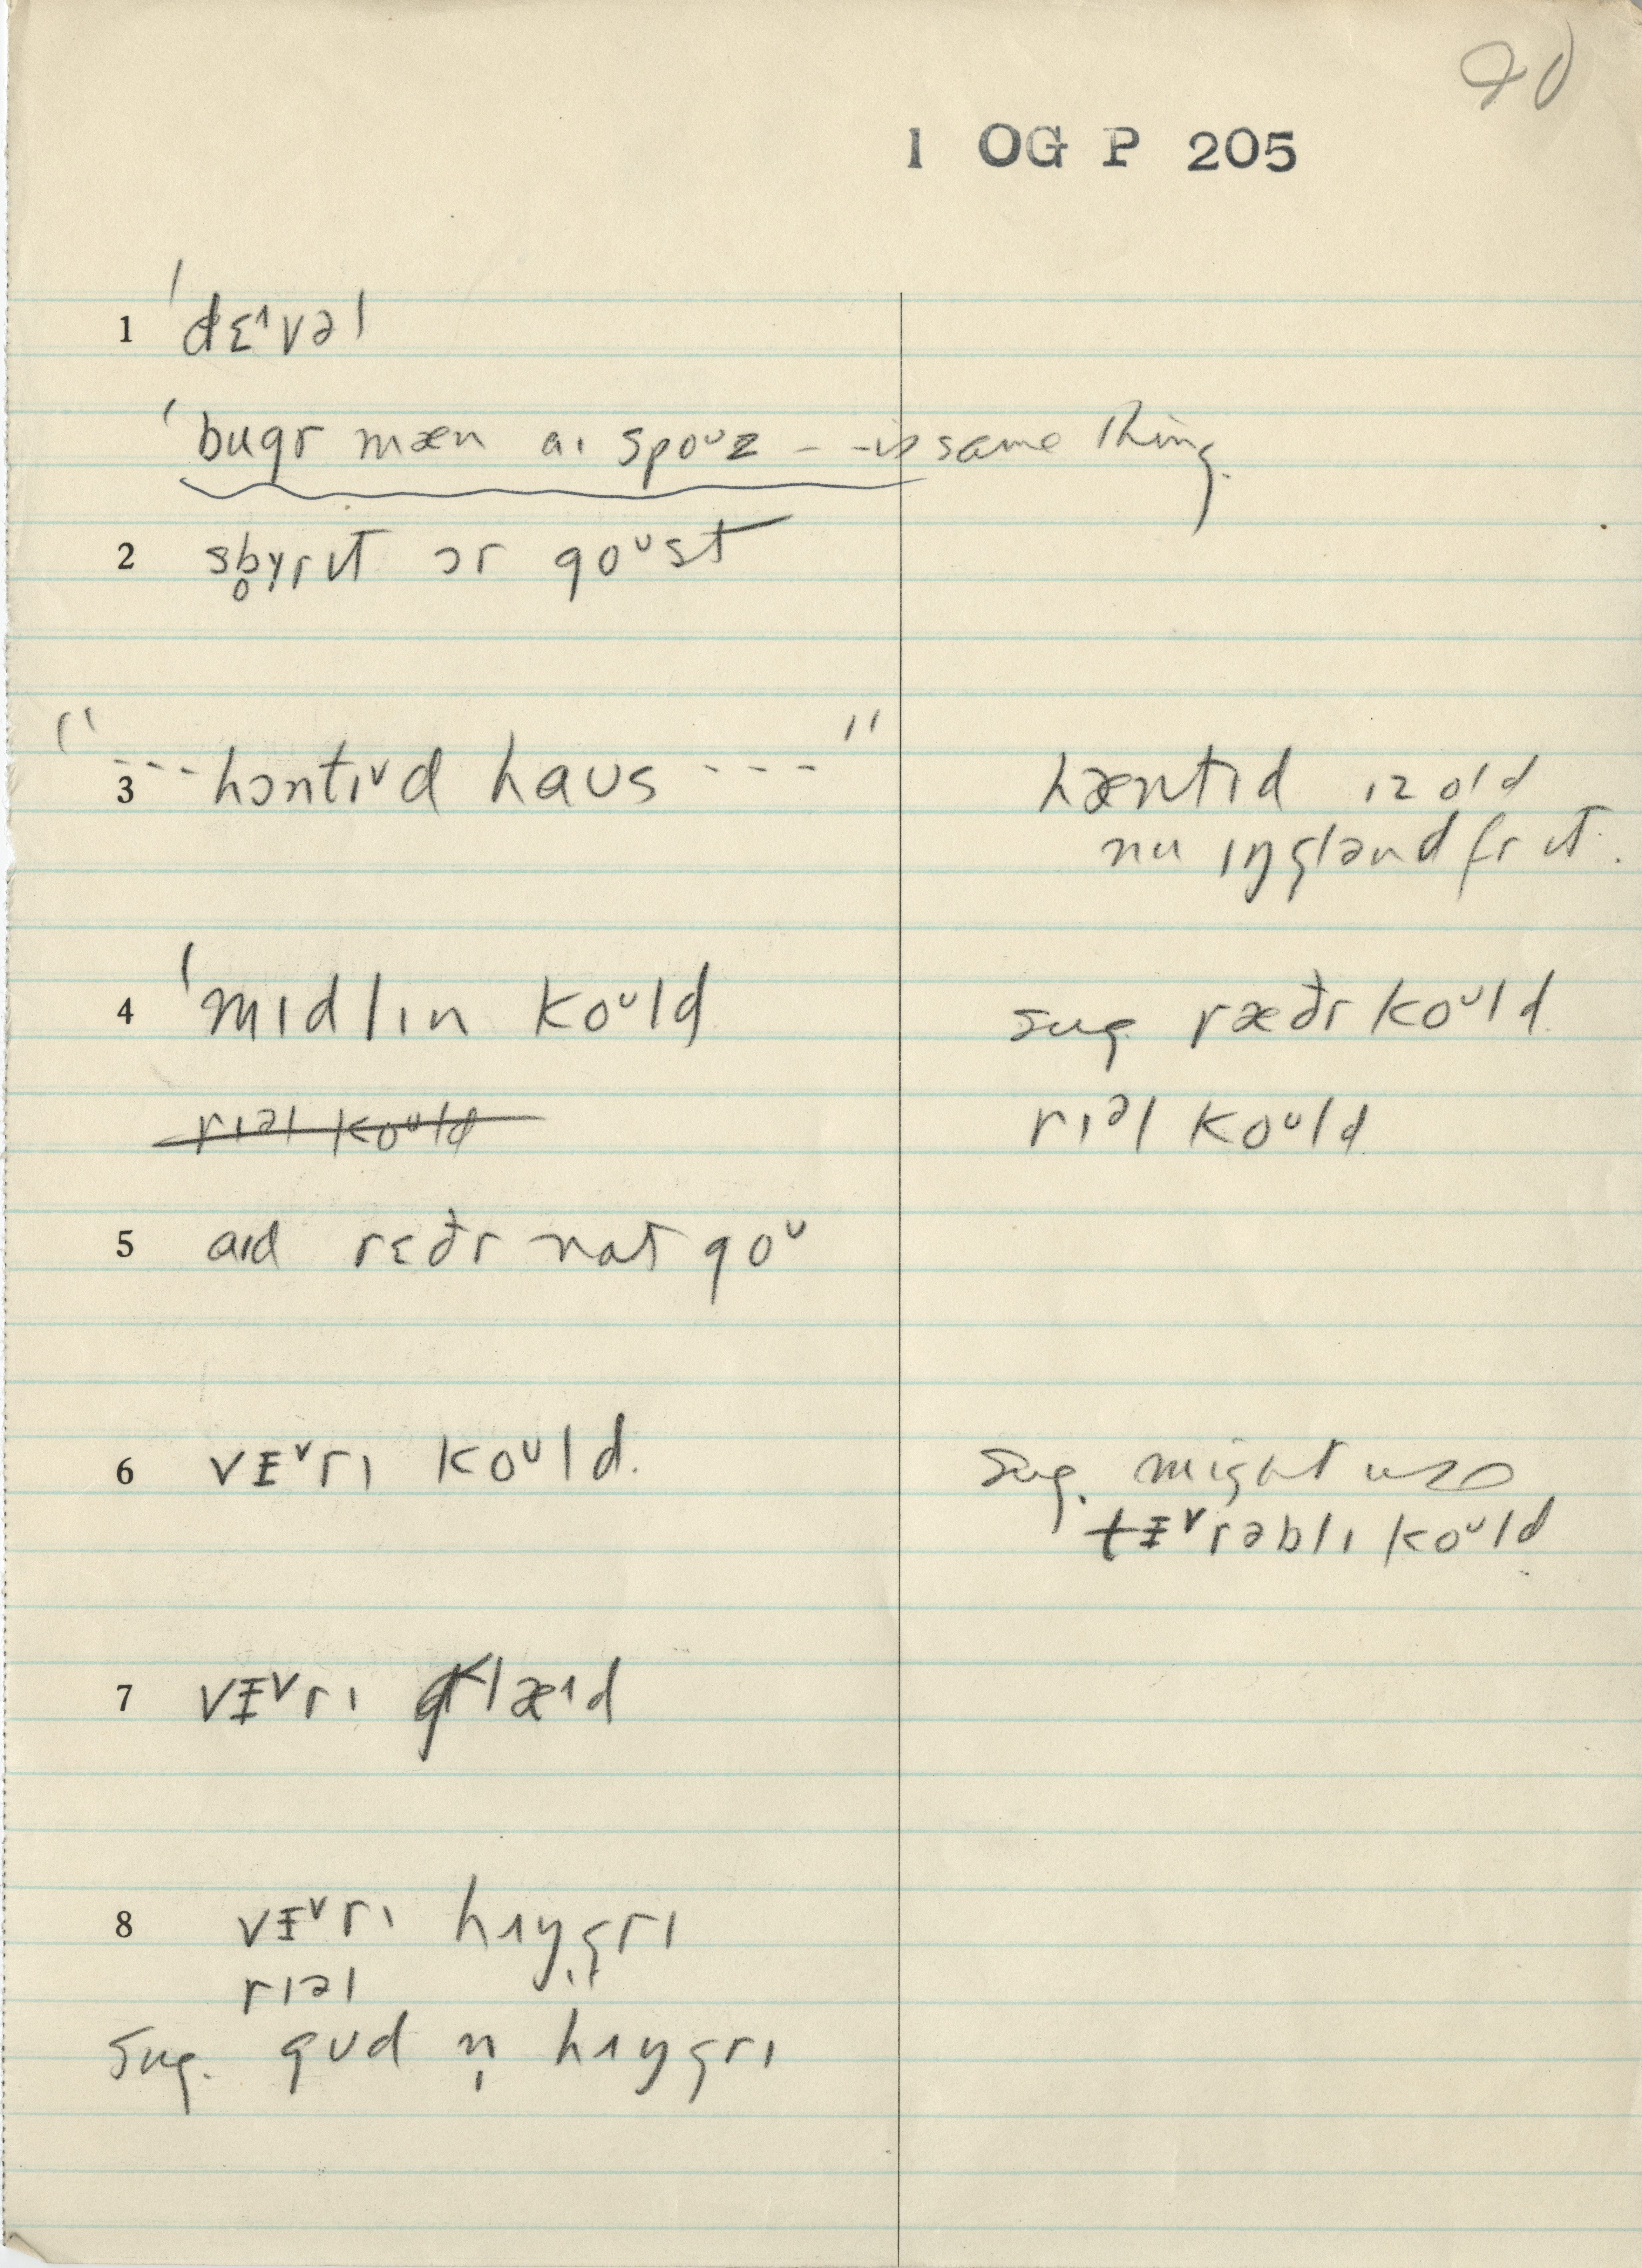 90
1 OG P 205
1 ˈdɛ^vəl
ˈbugr mæn aɪ spoᶷz - - is same thing.
2 sb̥ɤrɪt ɔr goᶷst
3 " - - - hɔntɪᵛd haʊs - - - " hæntɪd ɪz old
nu ɪŋglənd fr ɪt.
4 ˈmɪdlɪn koᶷld sug. ræðr koᶷld
~~rɪᵊl koᶷld~~ rɪᵊl koᶷld
5 aɪd rɛðr nat goᶷ
6 vᵻᵛrɪ koᶷld. Sug. might use
tᵻᵛrəblɪ koᶷld
7 vᵻᵛrɪ glæ^d
8 vᵻᵛrɪ hʌŋgrɪ
rɪəl "
Sug. gʊd n̩ hʌŋgrɪ